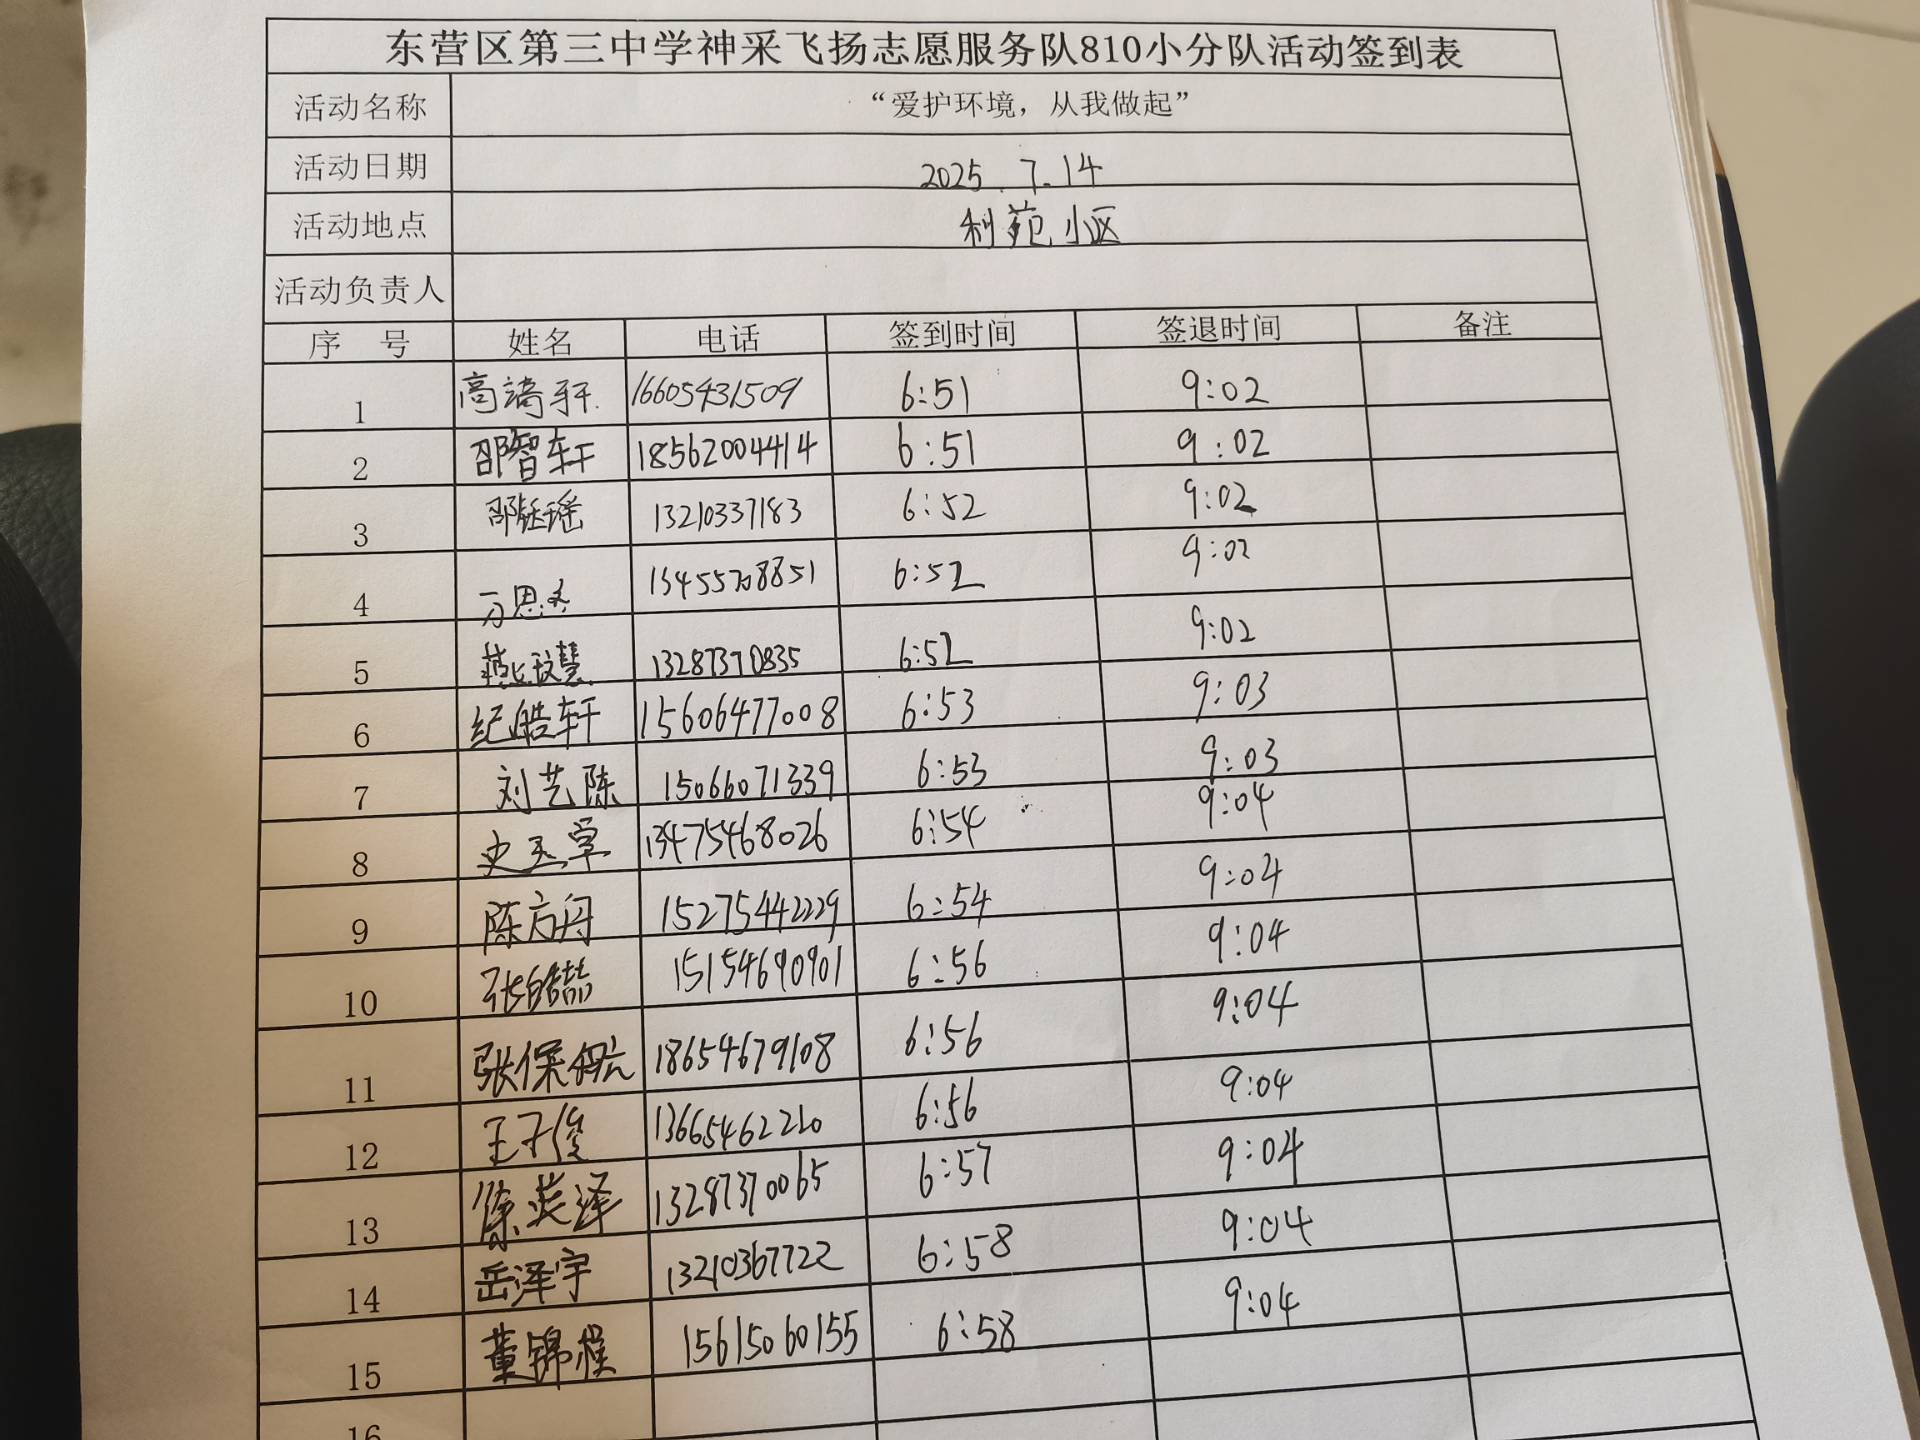 东营区第三中学神采飞扬志愿服务队810小分队活动签到表
活动名称 “爱护环境，从我做起”
活动日期 2025.7.14
活动地点 利苑小区
活动负责人
序 号 姓名 电话 签到时间 签退时间 备注
1 高 轩 16605431509 6:51 9:02
2 邵智轩 18562004414 6:51 9:02
3 邵钰瑶 13210337183 6:52 9:02
4 万恩 6:52 9:02
5 燕玟慧 13287370835 6:52 9:02
6 纪皓轩 15606477008 6:53 9:03
7 刘艺陈 15066071339 6:53 9:03
8 史玉 13475468026 6:54 9:04
9 陈方舟 15275442229 6:54 9:04
10 张皓喆 15154690901 6:56 9:04
11 张保航 18654679108 6:56 9:04
12 王子俊 13665462220 6:56 9:04
13 徐英泽 13287370065 6:57 9:04
14 岳泽宇 13210367722 6:58 9:04
15 董锦程 15615060155 6:58 9:04
16